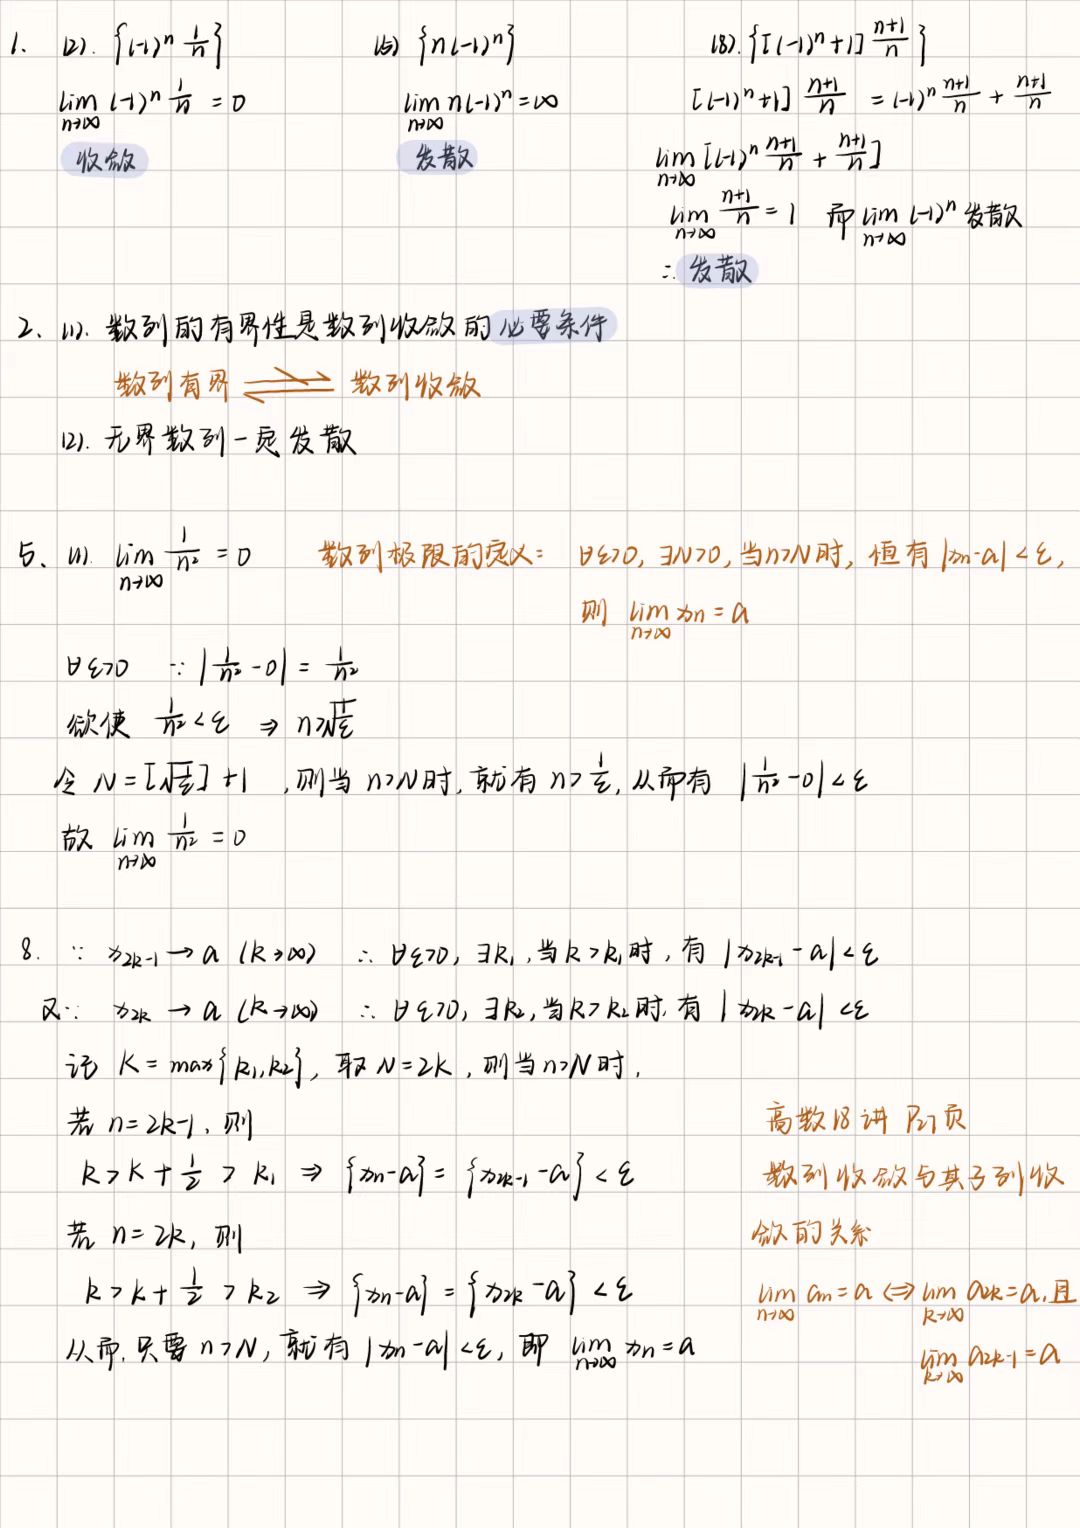 1. (2). {(-1)^n 1/n}
lim_{n→∞} (-1)^n 1/n = 0
收敛
(5) {n(-1)^n}
lim_{n→∞} n(-1)^n = ∞
发散
(8). {[(-1)^n+1] (n+1)/n}
[(-1)^n+1] (n+1)/n = (-1)^n (n+1)/n + (n+1)/n
lim_{n→∞} [(-1)^n (n+1)/n + (n+1)/n]
lim_{n→∞} (n+1)/n = 1 而 lim_{n→∞} (-1)^n 发散
∴ 发散
2、(1). 数列的有界性是数列收敛的必要条件
数列有界 ⇌ 数列收敛
(2). 无界数列一定发散
5、(1). lim_{n→∞} 1/n² = 0 数列极限的定义: ∀ε>0, ∃N>0, 当n>N时, 恒有 |xn-a|<ε,
则 lim_{n→∞} xn = a
∀ε>0 ∵ |1/n² - 0| = 1/n²
欲使 1/n² < ε ⇒ n>√(1/ε)
令 N = [√(1/ε)] + 1 ,则当 n>N时, 就有 n> 1/ε, 从而有 |1/n² - 0| < ε
故 lim_{n→∞} 1/n² = 0
8. ∵ x_{2k-1} → a (k→∞) ∴ ∀ε>0, ∃k₁, 当k>k₁时, 有 |x_{2k-1} - a| < ε
又∵ x_{2k} → a (k→∞) ∴ ∀ε>0, ∃k₂, 当k>k₂时, 有 |x_{2k} - a| < ε
记 K = max{k₁,k₂}, 取 N = 2K, 则当 n>N 时,
若 n = 2k-1, 则
k > K + 1/2 > k₁ ⇒ {xn-a} = {x_{2k-1} - a} < ε
若 n = 2k, 则
k > k + 1/2 > k₂ ⇒ {xn-a} = {x_{2k} - a} < ε
从而, 只要 n>N, 就有 |xn - a| < ε, 即 lim_{n→∞} xn = a
高数18讲 P27页
数列收敛与其子列收
敛的关系
lim_{n→∞} an = a ⇔ lim_{k→∞} a_{2k} = a, 且
lim_{k→∞} a_{2k-1} = a